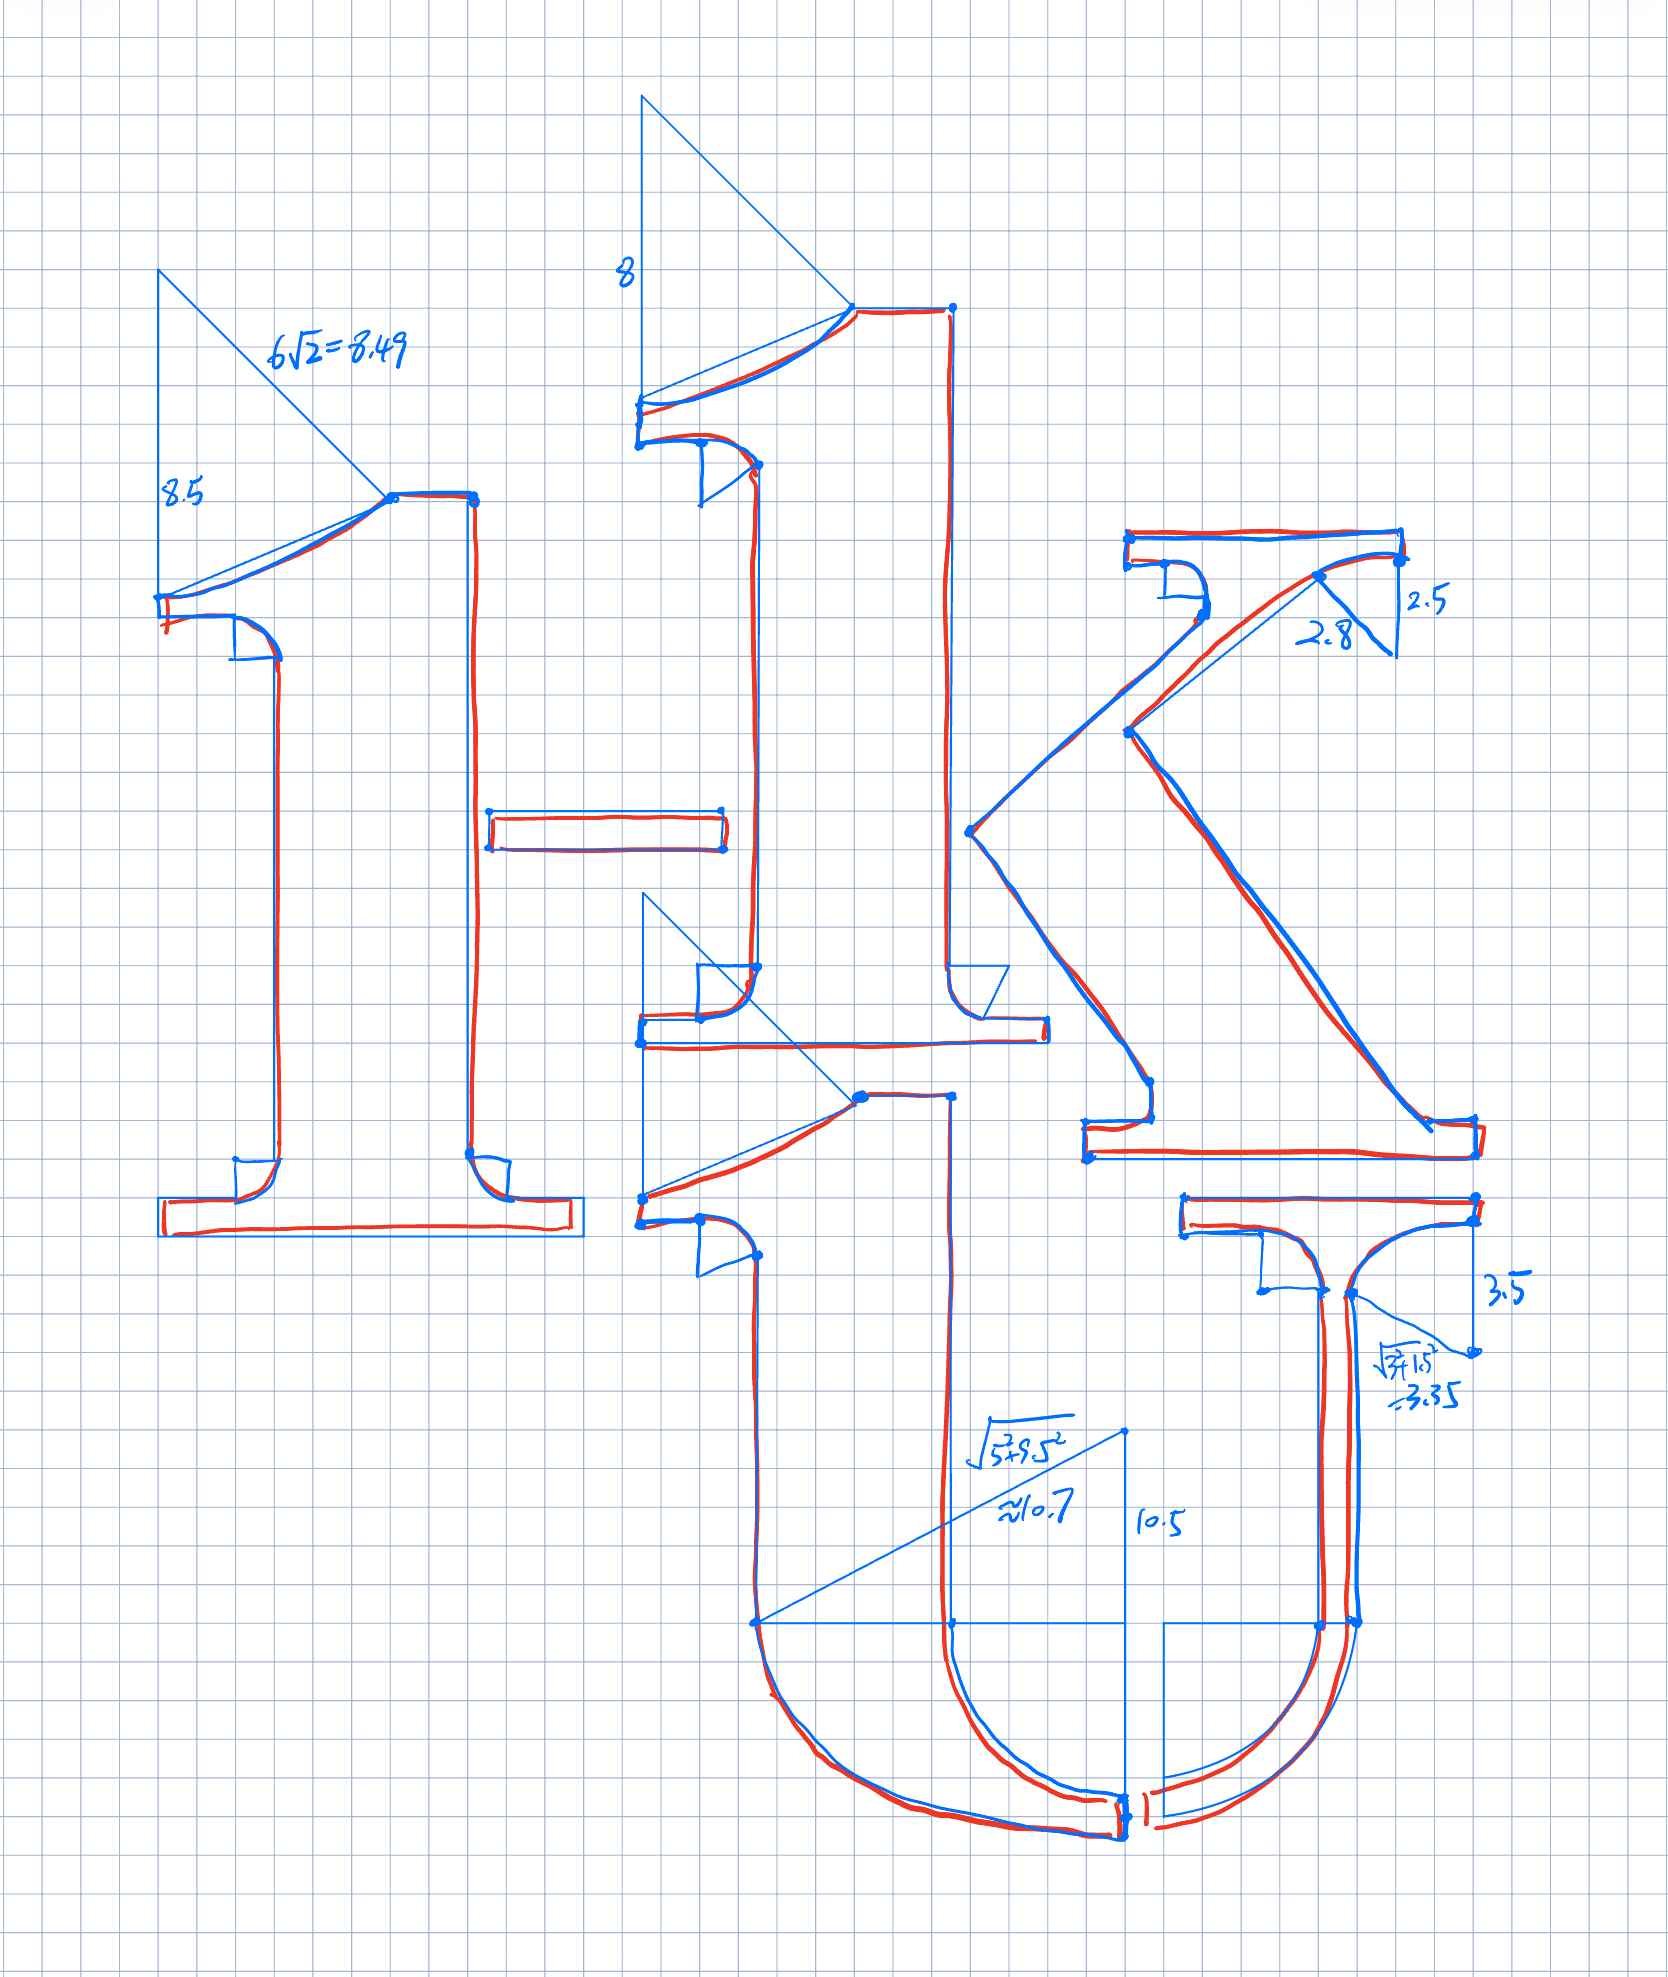 8
6√2=8.49
8.5
2.5
2.8
3.5
√3²+1.5²
=3.35
√5²+9.5²
≈10.7
10.5